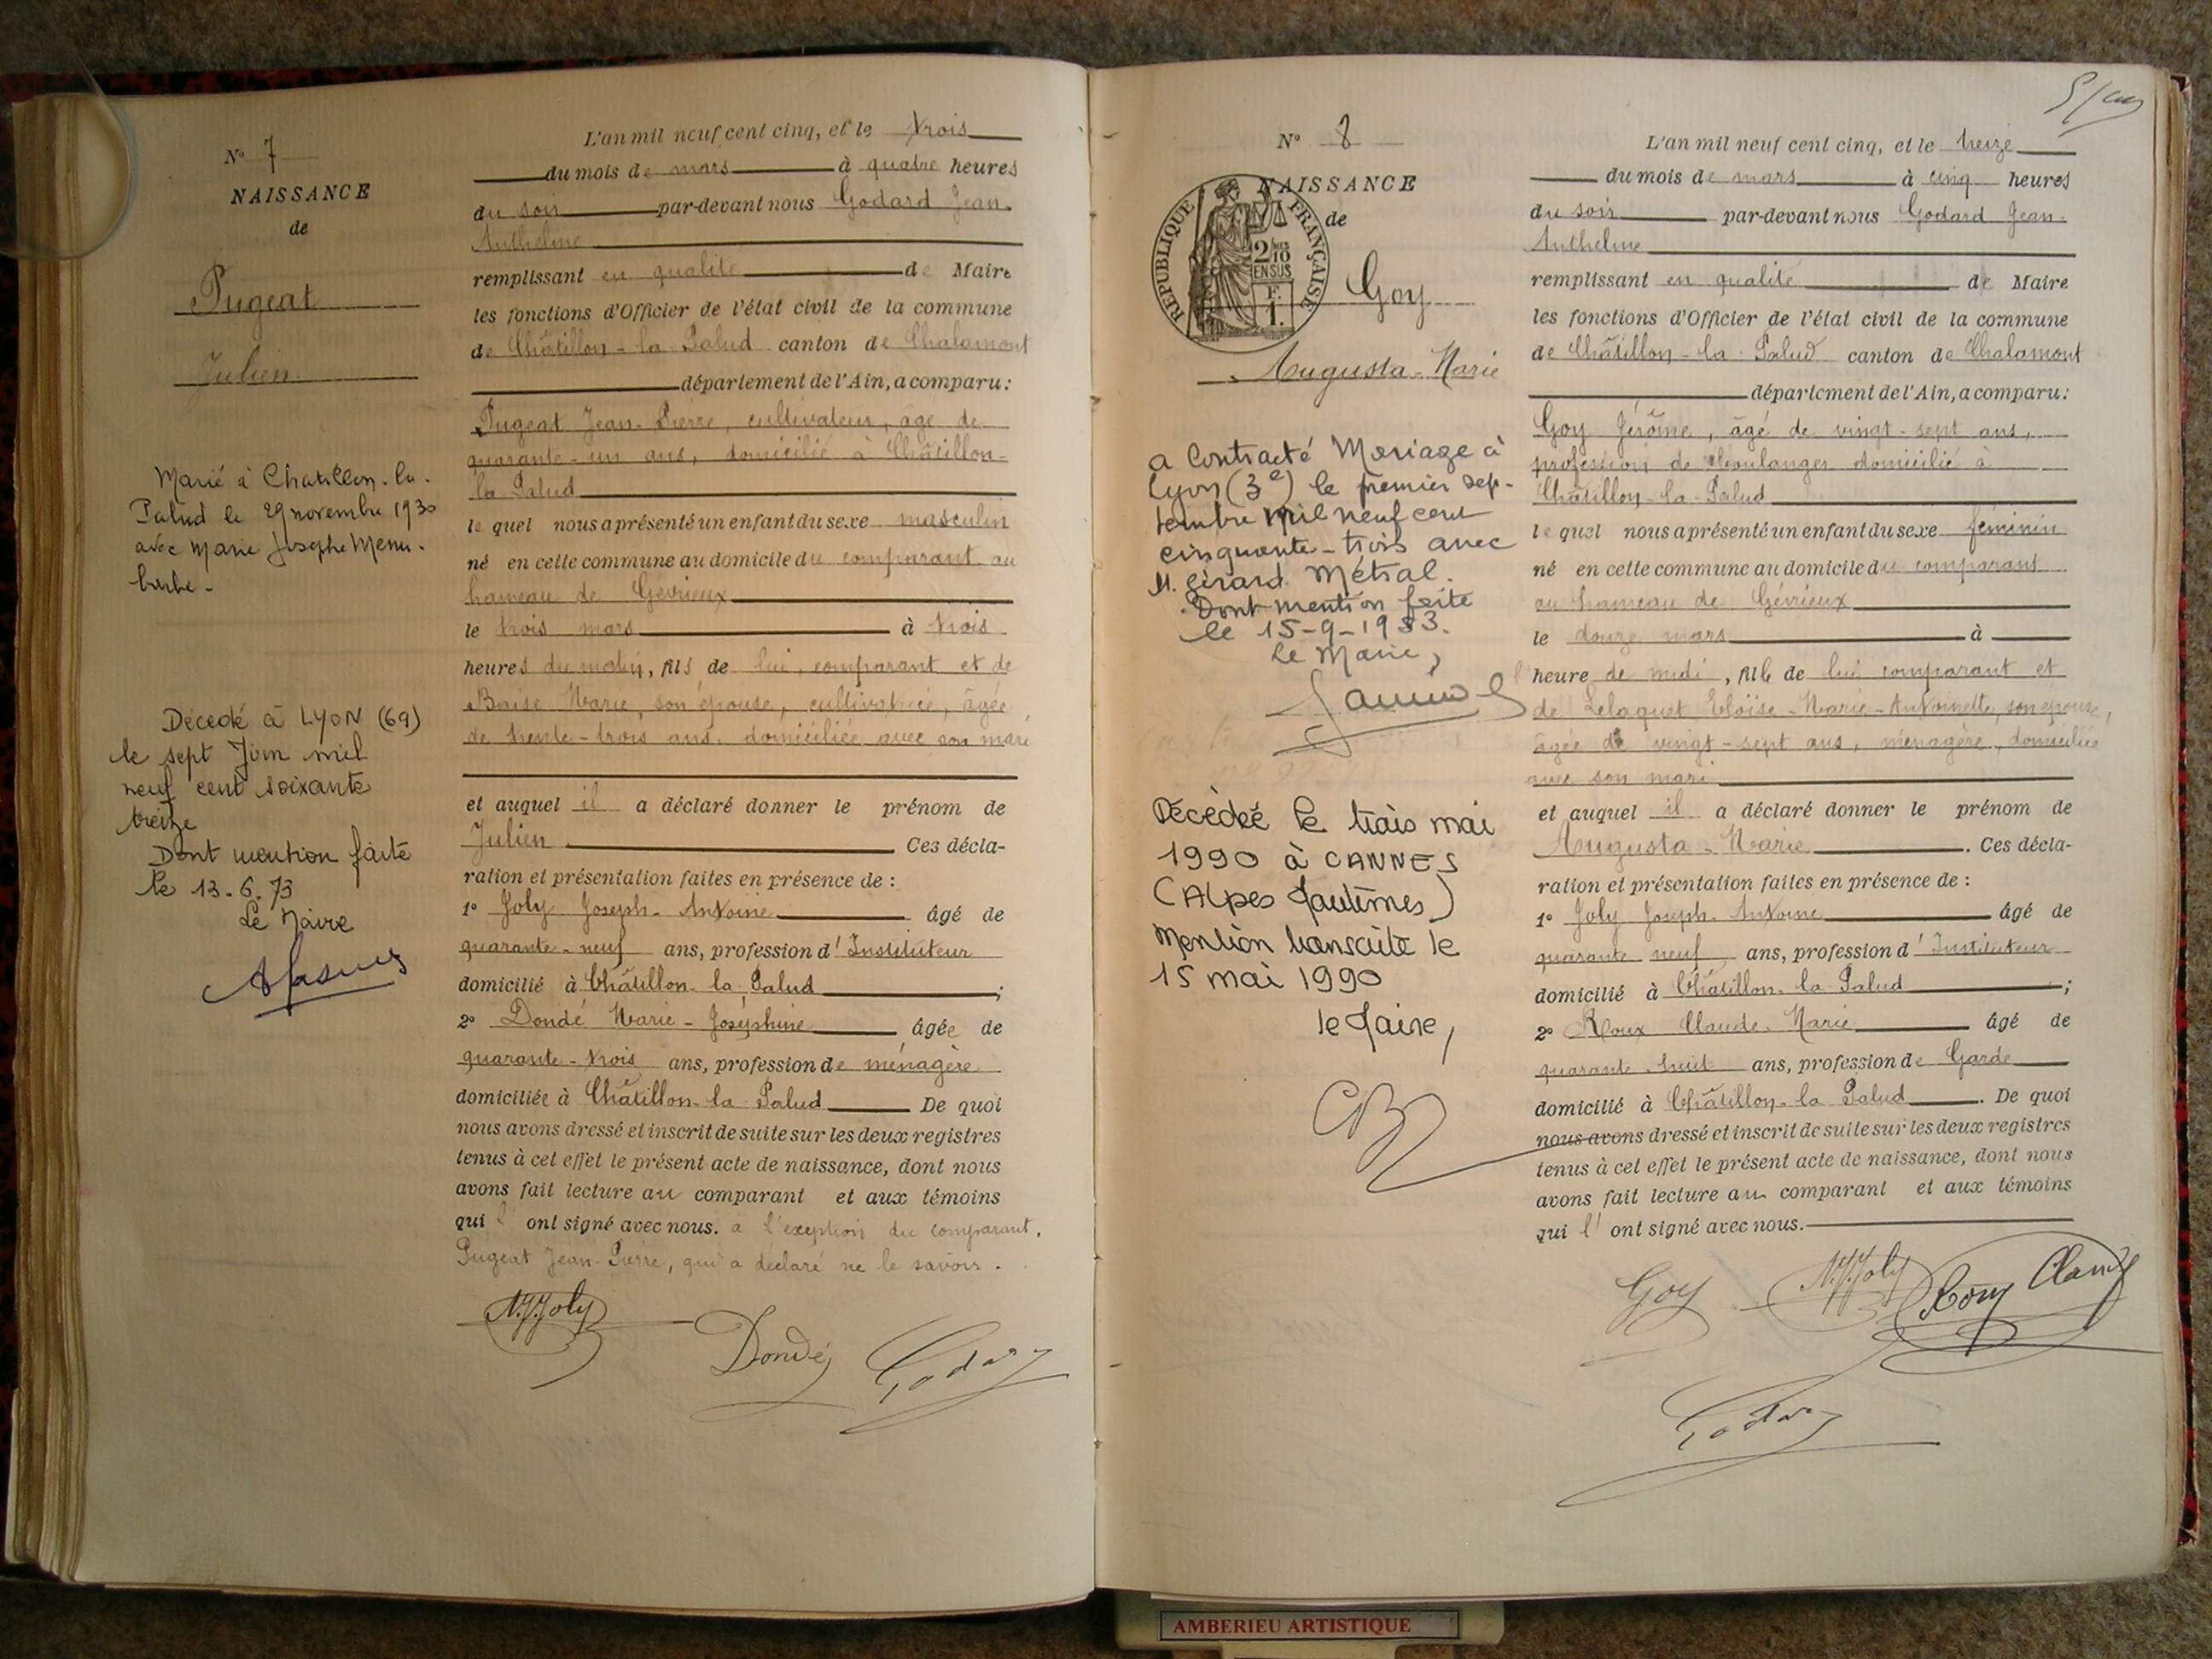 N° 7
NAISSANCE
de
Pugeat
Julien
Marié à Chatillon-la-
Palud le 29 novembre 1930
avec Marie Josephe Menu-
barbe -
Décédé à LYON (69)
le sept Juin mil
neuf cent soixante
treize
Dont mention faite
le 13.6.73
Le Maire
L'an mil neuf cent cinq, et le trois
du mois de mars à quatre heures
du soir par-devant nous Godard Jean-
Anthelme
remplissant en qualité de Maire
les fonctions d'Officier de l'état civil de la commune
de Châtillon-la-Palud canton de Chalamont
département de l'Ain, a comparu:
Pugeat Jean-Pierre, cultivateur, âgé de
quarante-un ans, domicilié à Châtillon-
la-Palud
le quel nous a présenté un enfant du sexe masculin
né en cette commune au domicile du comparant au
hameau de Gévrieux
le trois mars à trois
heures du matin, fils de lui, comparant et de
Baise Marie, son épouse, cultivatrice, âgée
de trente-trois ans, domiciliée avec son mari
et auquel il a déclaré donner le prénom de
Julien Ces décla-
ration et présentation faites en présence de :
1° Joly Joseph-Antoine âgé de
quarante-neuf ans, profession d'Instituteur
domicilié à Châtillon-la-Palud ;
2° Dondé Marie-Joséphine âgée de
quarante-trois ans, profession de ménagère
domiciliée à Châtillon-la-Palud De quoi
nous avons dressé et inscrit de suite sur les deux registres
tenus à cet effet le présent acte de naissance, dont nous
avons fait lecture au comparant et aux témoins
qui l' ont signé avec nous. a l'exeption du comparant,
Pugeat Jean-Pierre, qui a déclaré ne le savoir.
Joly
Dondé
Godard
N° 8
NAISSANCE
de
REPUBLIQUE FRANÇAISE
2/10
EN SUS
F.
1.
Goy
Augusta-Marie
a Contracté Mariage à
Lyon (3e) le premier sep-
tembre mil neuf cent
cinquante-trois avec
M. Gérard Métral.
Dont mention faite
le 15-9-1953.
Le Maire,
Décédée le trois mai
1990 à CANNES
(Alpes Maritimes)
Mention transcrite le
15 mai 1990
le Maire,
L'an mil neuf cent cinq, et le treize
du mois de mars à cinq heures
du soir par-devant nous Godard Jean-
Anthelme
remplissant en qualité de Maire
les fonctions d'Officier de l'état civil de la commune
de Châtillon-la-Palud canton de Chalamont
département de l'Ain, a comparu:
Goy Jérôme, âgé de vingt-sept ans,
profession de boulanger domicilié à
Châtillon-la-Palud
le quel nous a présenté un enfant du sexe féminin
né en cette commune au domicile du comparant
au hameau de Gévrieux
le douze mars à
l'heure de midi, fille de lui comparant et
de Lelaquet Eloïse-Marie-Antoinette, son épouse,
âgée de vingt-sept ans, ménagère, domiciliée
avec son mari
et auquel il a déclaré donner le prénom de
Augusta-Marie. Ces décla-
ration et présentation faites en présence de :
1° Joly Joseph-Antoine âgé de
quarante neuf ans, profession d'Instituteur
domicilié à Châtillon-la-Palud ;
2° Roux Claude-Marie âgé de
quarante-huit ans, profession de Garde
domicilié à Châtillon-la Palud. De quoi
nous avons dressé et inscrit de suite sur les deux registres
tenus à cet effet le présent acte de naissance, dont nous
avons fait lecture au comparant et aux témoins
qui l' ont signé avec nous.
Goy
Joly
Roux Claude
Godard
AMBERIEU ARTISTIQUE